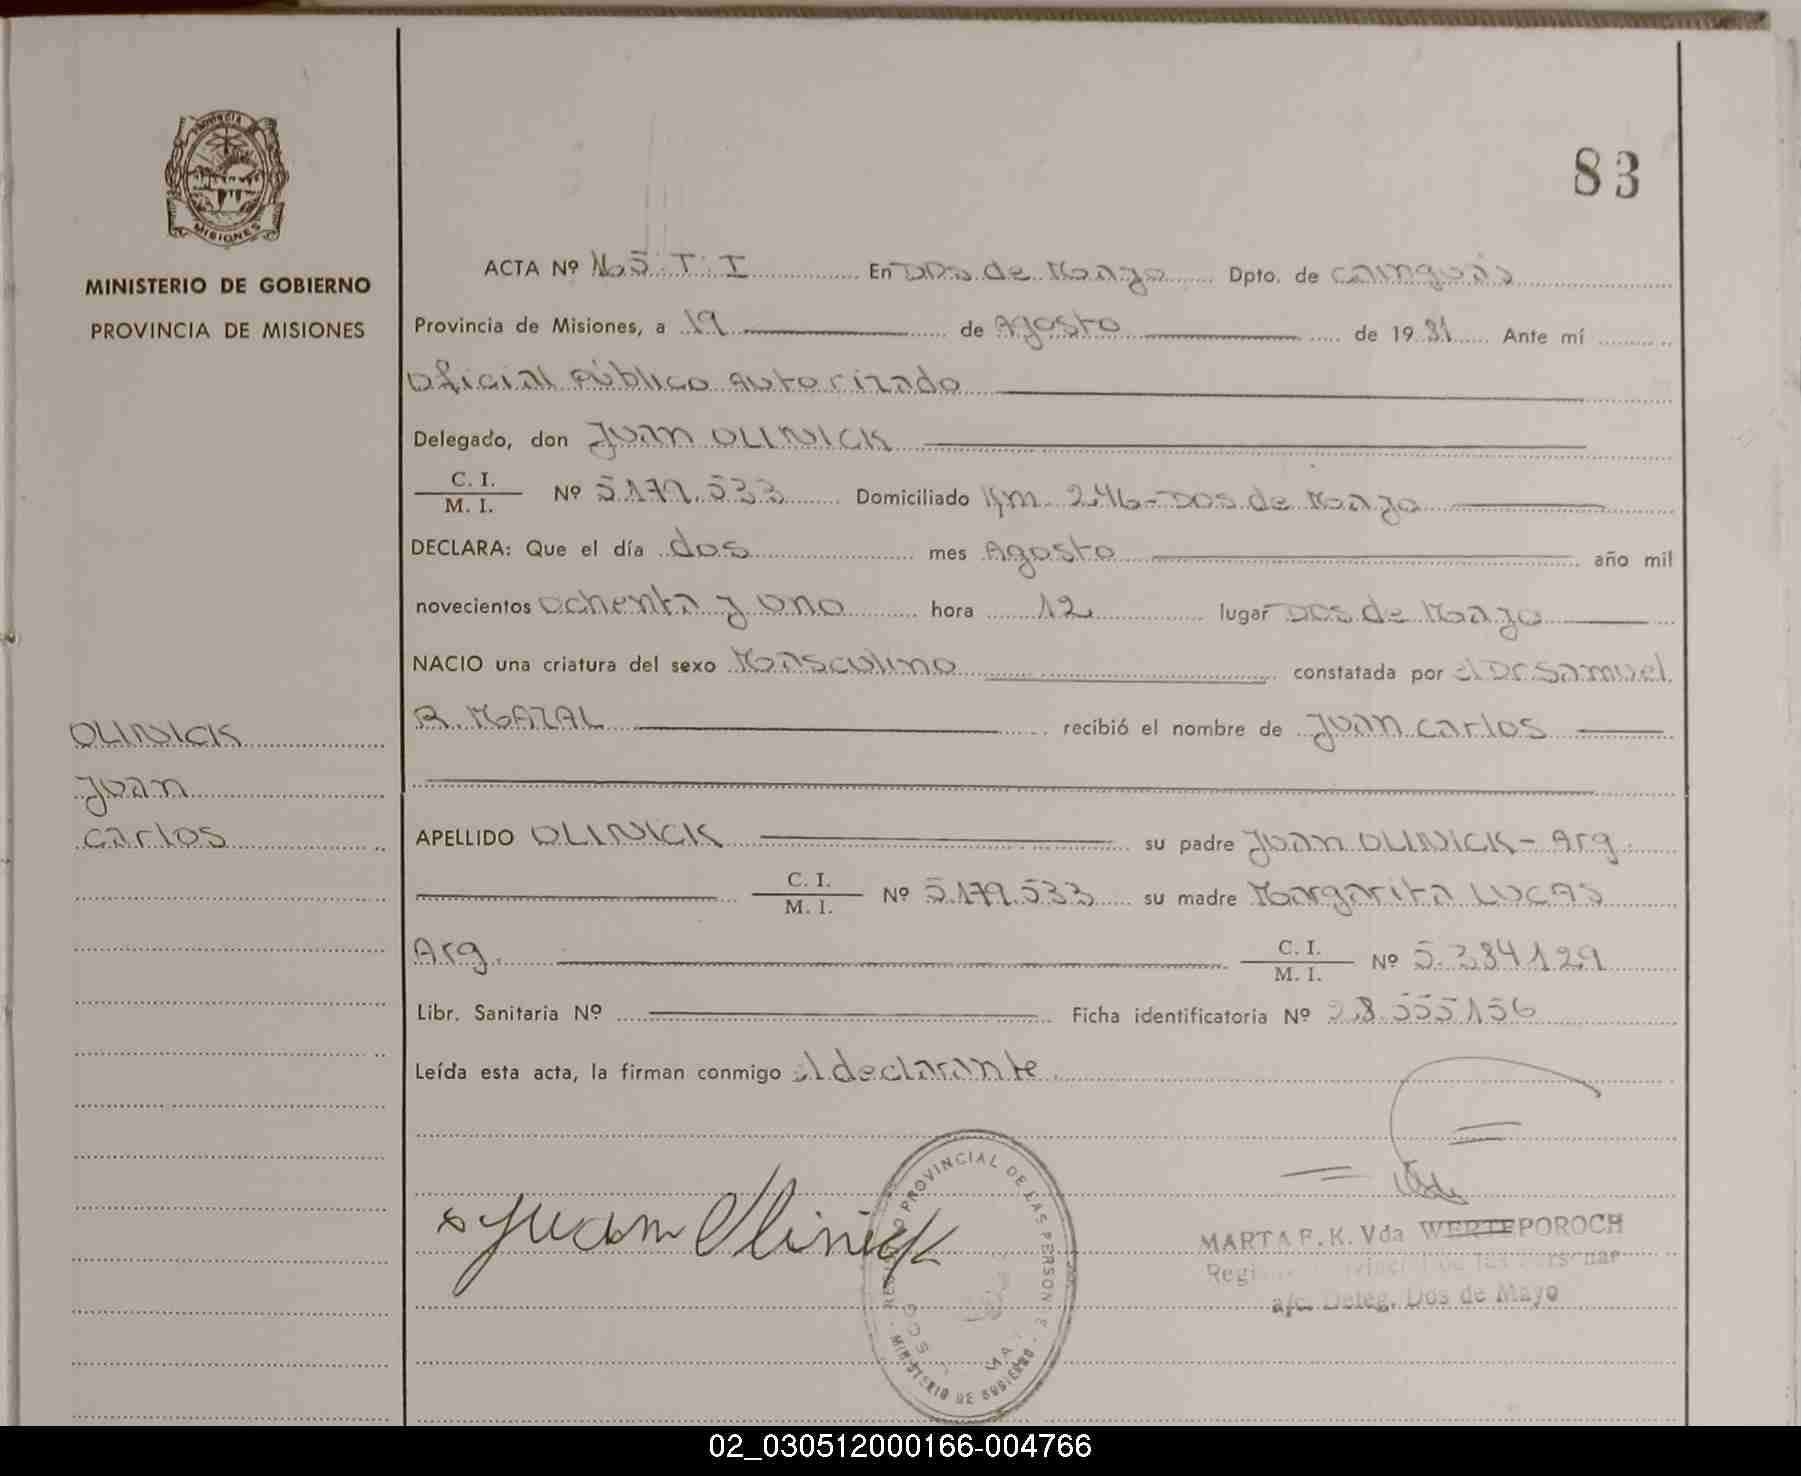 83
MINISTERIO DE GOBIERNO
PROVINCIA DE MISIONES
ACTA Nº 165. T: I En Dos de Mayo Dpto. de Cainguás
Provincia de Misiones, a 19 de Agosto de 1981 Ante mí
Oficial Público Autorizado
Delegado, don Juan OLINICK
C. I.
M. I. Nº 5.179.533 Domiciliado Km. 246 - Dos de Mayo
DECLARA: Que el día dos mes Agosto año mil
novecientos ochenta y uno hora 12 lugar Dos de Mayo
NACIO una criatura del sexo Masculino constatada por el Dr Samuel
R. MAZAL recibió el nombre de Juan Carlos
OLINICK
Juan
Carlos
APELLIDO OLINICK su padre Juan OLINICK - Arg.
C. I.
M. I. Nº 5.179.533 su madre Margarita LUCAS
Arg. C. I.
M. I. Nº 5.384129
Libr. Sanitaria Nº Ficha identificatoria Nº 28.555156
Leída esta acta, la firman conmigo el declarante.
x Juan Olinick
REGISTRO PROVINCIAL DE LAS PERSONAS
MINISTERIO DE GOBIERNO
MARTA F. K. Vda WERTEPOROCH
a/c. Deleg. Dos de Mayo
02_030512000166-004766